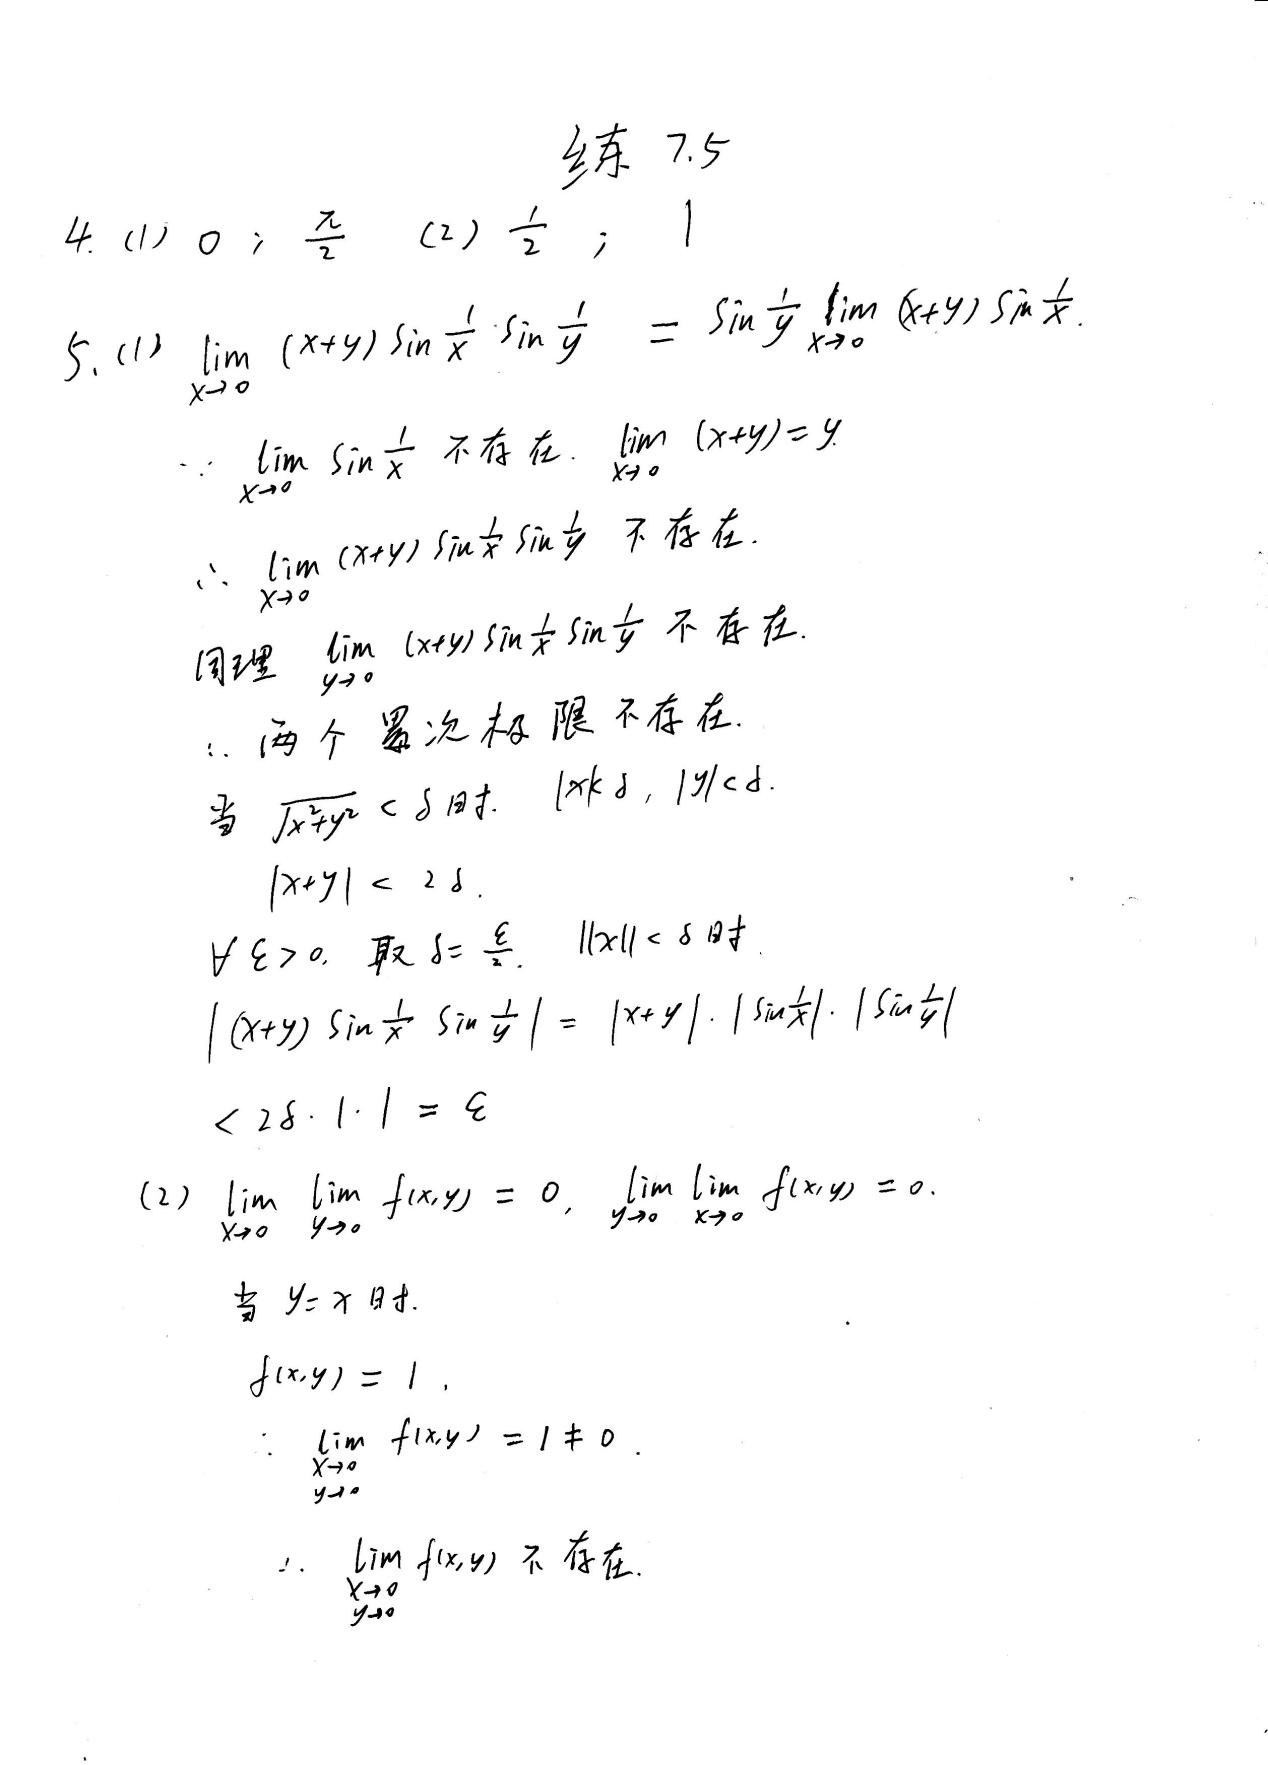 练 7.5
4. (1) 0 ; π/2 (2) 1/2 ; 1
5. (1) lim_{x→0} (x+y) sin 1/x · sin 1/y = sin 1/y lim_{x→0} (x+y) sin 1/x.
∵ lim_{x→0} sin 1/x 不存在. lim_{x→0} (x+y) = y.
∴ lim_{x→0} (x+y) sin 1/x sin 1/y 不存在.
同理 lim_{y→0} (x+y) sin 1/x sin 1/y 不存在.
∴ 两个累次极限不存在.
当 √(x²+y²) < δ 时. |x|<δ, |y|<δ.
|x+y| < 2δ.
∀ ε>0, 取 δ = ε/2. ||x|| < δ 时.
|(x+y) sin 1/x sin 1/y| = |x+y| · |sin 1/x| · |sin 1/y|
< 2δ · 1 · 1 = ε
(2) lim_{x→0} lim_{y→0} f(x,y) = 0, lim_{y→0} lim_{x→0} f(x,y) = 0.
当 y = x 时.
f(x,y) = 1.
∴ lim_{x→0 y→0} f(x,y) = 1 ≠ 0.
∴ lim_{x→0 y→0} f(x,y) 不存在.